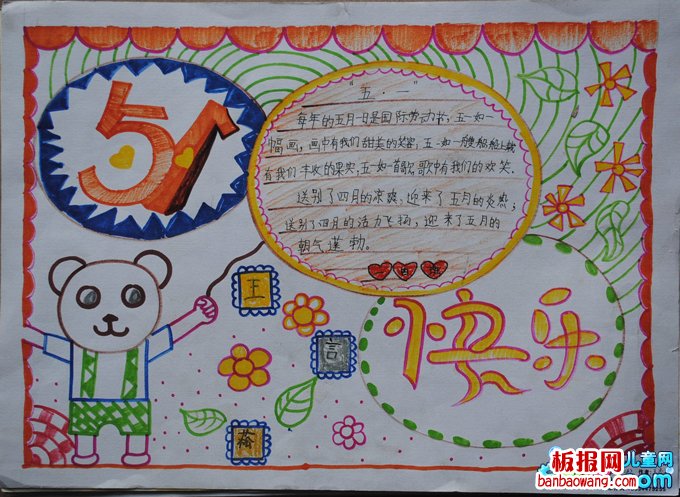 51
"五·一"
每年的五月一日是国际劳动节,五一如一
幅画,画中有我们甜美的笑容,五一如一艘船,船上载
有我们丰收的果实,五一如一首歌,歌中有我们的欢笑.
送别了四月的凉爽,迎来了五月的炎热;
送别了四月的活力飞扬,迎来了五月的
朝气蓬勃。
王
言
快乐
板报网儿童网
banbaowang.com